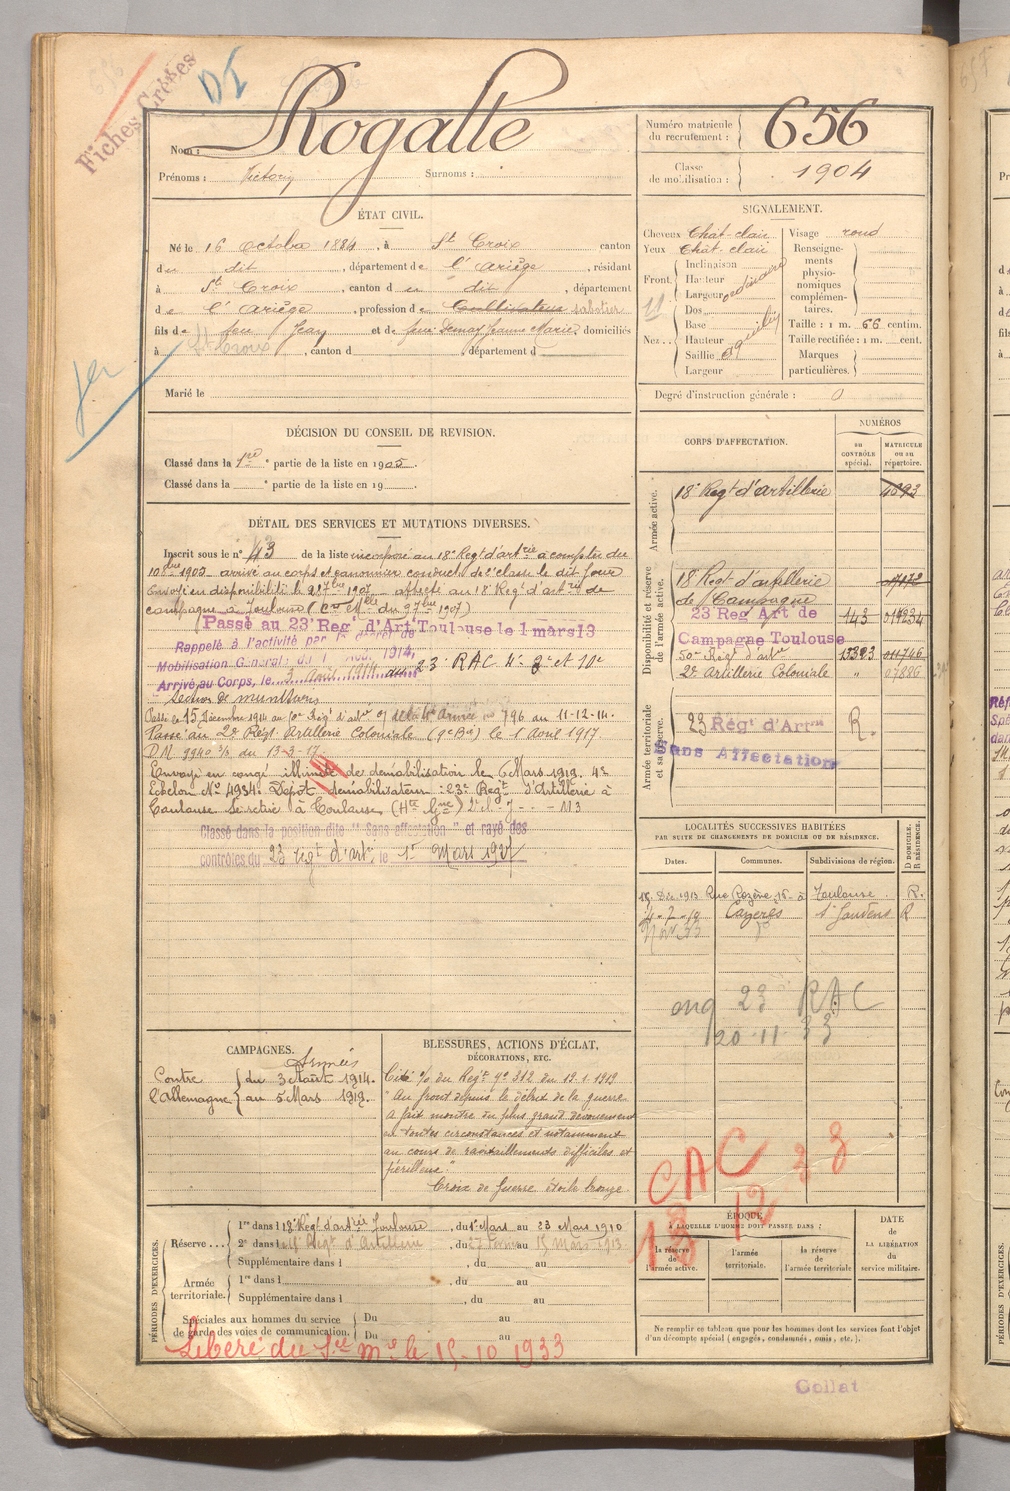 Fiches Créées
DI
Nom : Rogalle
Prénoms : Victory Surnoms :
Numéro matricule du recrutement : 656
Classe de mobilisation : 1904
ÉTAT CIVIL.
Né le 16 octobre 1884, à St Croix canton
du dit, département de l'Ariège, résidant
à St Croix, canton du dit, département
de l'Ariège, profession de Cultivateur sabotier
fils de feu Jean et de feue Jeanne Marie, domiciliés
à St Croix, canton d , département d
Marié le
SIGNALEMENT.
Cheveux Chat-clair
Yeux Chât-clair
Front. Inclinaison
Hauteur
Largeur
ordinaire
Nez.. Dos
Base
Hauteur
Saillie
Largeur
Visage rond
Renseignements physionomiques complémentaires.
Taille : 1 m. 66 centim.
Taille rectifiée : 1 m. cent.
Marques particulières.
Degré d'instruction générale : 0
DÉCISION DU CONSEIL DE REVISION.
Classé dans la 1re partie de la liste en 1905.
Classé dans la e partie de la liste en 19
DÉTAIL DES SERVICES ET MUTATIONS DIVERSES.
Inscrit sous le n° 43 de la liste incorporé au 18e Regt d'artrie à compter du
arrivé au corps et canonnier conductr de 2e classe le dit jour
Envoyé en disponibilité le 1907 affecté au 18 Regt d'artrie de
campagne à Toulouse
Passé au 23e Reg. d'Art Toulouse le 1 mars 13
Rappelé à l'activité par
Mobilisation Générale du 1 Août 1914,
Arrivé au Corps, le 3 Août 1914 au 23e R.A.C. 4e et 10e
Section de munitions
Passé le 15 Décembre 1914 au 50e Régt d'artie 796 du 11-12-14.
Passé au 2e Régt Artillerie Coloniale (9e Bie) le 1 Avril 1917
D.M. 9940 3/3 du 13-3-17.
Envoyé en congé illimité de démobilisation le 6 Mars 1919. 4e
Echelon No 4934. Dépôt démobilisateur : 23e Regt d'Artillerie à
Toulouse Se retire à Toulouse (Hte Gne)
Classé dans la position dite "Sans affectation" et rayé des
contrôles du 23 régt d'artie le 1er Mars 1927
CORPS D'AFFECTATION.
NUMÉROS
au CONTRÔLE spécial.
MATRICULE ou au répertoire.
Armée active.
18e Regt d'artillerie 4693
Disponibilité et réserve de l'armée active.
18 Regt d'artillerie
de Campagne
23 Reg Art de 143
Campagne Toulouse
50e Regt d'artie 13323 011746
2e Artillerie Coloniale "
Armée territoriale et sa réserve.
23 Régt d'Artie R.
Sans Affectation
LOCALITÉS SUCCESSIVES HABITÉES
PAR SUITE DE CHANGEMENTS DE DOMICILE OU DE RÉSIDENCE.
Dates. Communes. Subdivisions de région.
D DOMICILE. R RÉSIDENCE.
15 Déc 1913 Rue Rozène, 15 à Toulouse. R.
4-7-19 Cazères St Gaudens R
Nov. 33
23 RAC
20-11-33
CAMPAGNES.
Armées
Contre l'Allemagne
du 3 Août 1914.
au 5 Mars 1919.
BLESSURES, ACTIONS D'ÉCLAT,
DÉCORATIONS, ETC.
Cité o/o du Regt No 312 du 19.1.1919
"Au front depuis le début de la guerre
a fait montre du plus grand dévouement
en toutes circonstances et notamment
au cours de ravitaillements difficiles et
périlleux."
Croix de Guerre étoile bronze
CAC 23
18 12
PÉRIODES D'EXERCICES.
Réserve... 1re dans l 18e Régt d'artrie Toulouse, du 1 Mars au 23 Mars 1910
2e dans l Régt d'Artillerie, du 27 au 15 Mars 1913
Supplémentaire dans l , du au
Armée territoriale. 1re dans l , du au
Supplémentaire dans l , du au
Spéciales aux hommes du service de garde des voies de communication.
Du au
Du au
Libéré du Sce mre le 15-10 1933
ÉPOQUE
À LAQUELLE L'HOMME DOIT PASSER DANS :
la réserve de l'armée active.
l'armée territoriale.
la réserve de l'armée territoriale
DATE de LA LIBÉRATION du service militaire.
Ne remplir ce tableau que pour les hommes dont les services font l'objet
d'un décompte spécial (engagés, condamnés, omis, etc.).
Collat